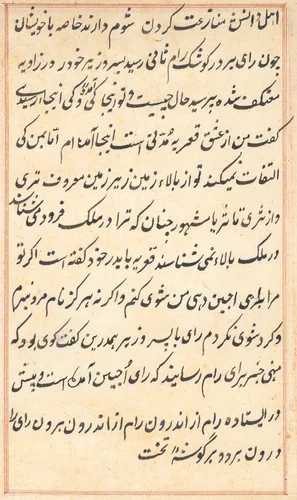 اهل دانش منازعت کردن شوم دارند خاصه باخویشان
چون رای ببر در کوشک رام نانی رسید پسر وزیر خود در زاویه
معتکف شده پرسید حال چیست و تو اینجا کی آمدهٔ و کی اینجا رسیدی
گفت من از عشق قعریه مدتی است اینجا آمده ام اما بمن کی
التفات نمیکند تو از بالاء زمین زیر زمین معروف تری
و از ثری تا ثریا مشهور چنان که ترا در ملک فرود می شناسند
در ملک بالاء نمی شناسند قعریه با پدر خود گفته است اگر تو
مرا برای اجین دهی من شوی کنم و اگر نه هرگز نام مرد نبرم
و کرد شوی نگردم رای با پسر وزیر بهمدرین گفت گوی بود که
منهی خبر برای رام رسانید که رای اجین آمده است و پیش
در ایستاده رام از اندرون رام از اندرون بیرون رای را
درون برد و بر گوشهٔ تخت